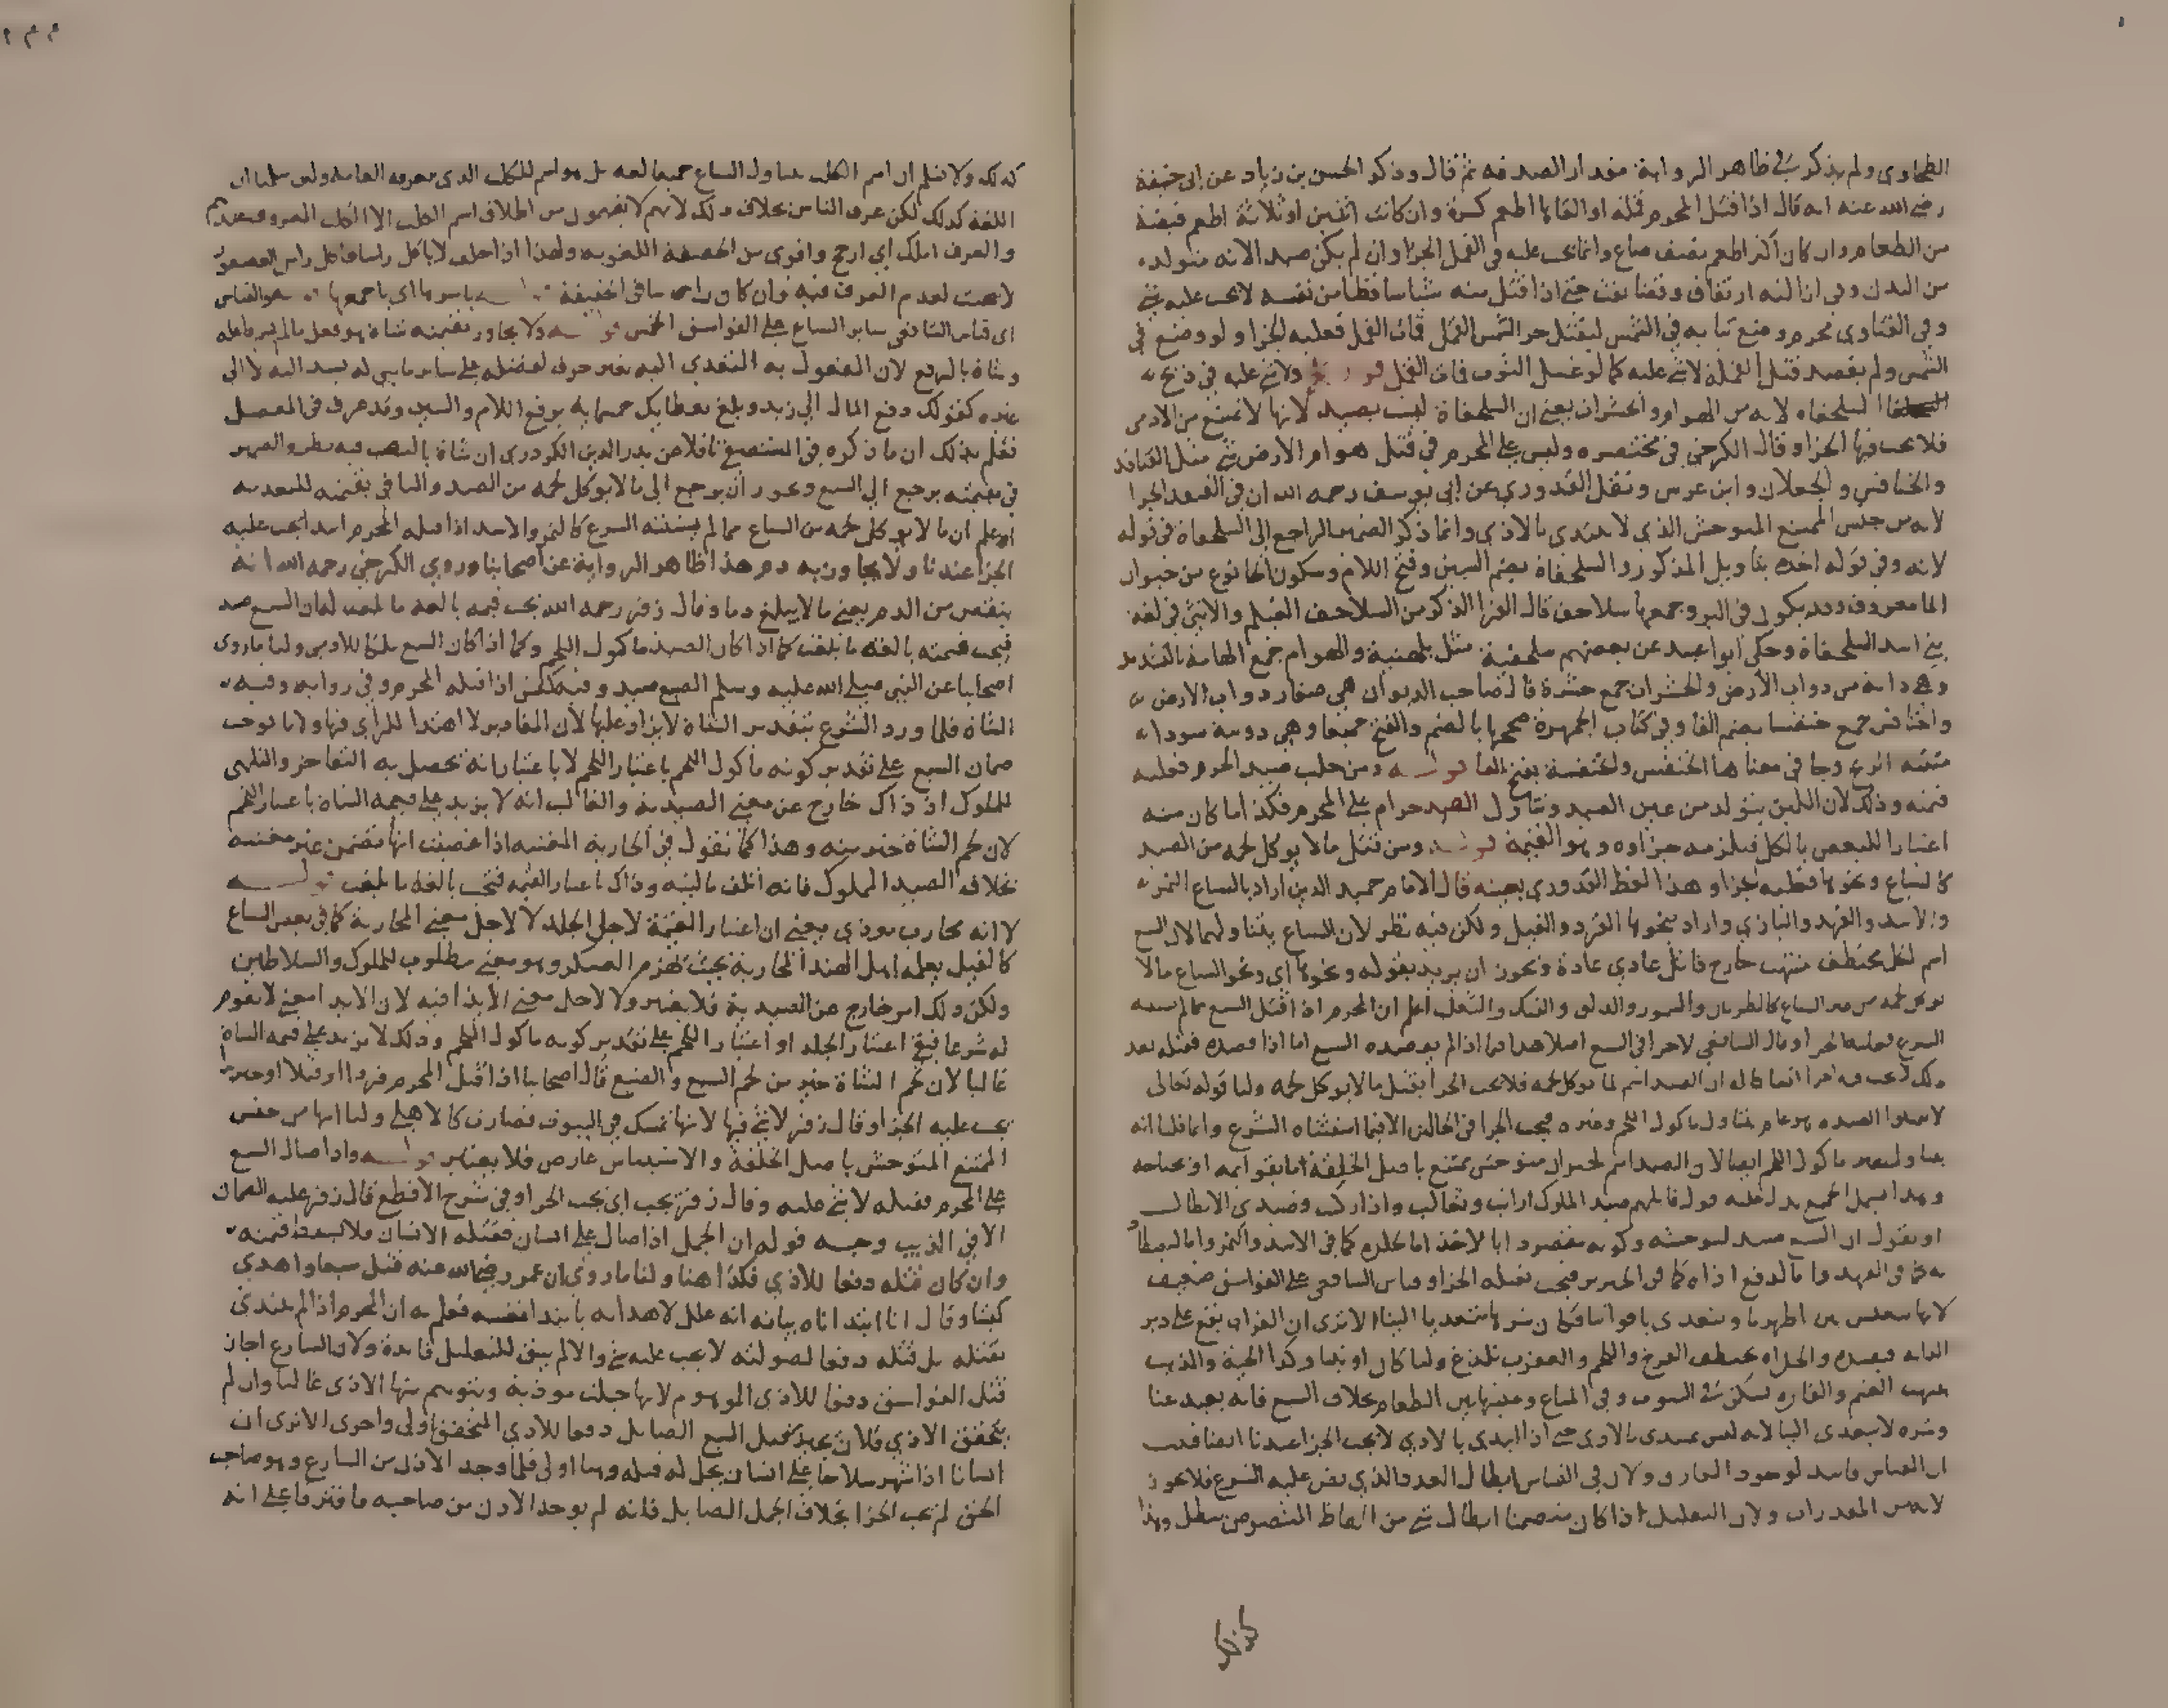 الطحاوي ولم يذكر في ظاهر الرواية مقدار الصدقة ثم قال وذكر الحسن بن زياد عن ابي حنيفة
رضي الله عنه انه قال اذا قتل المحرم قملة او القاها اطعم كسرة وان كانت اثنين او ثلاثة اطعم قبضة
من الطعام وان كان اكثر اطعم نصف صاع وانما يجب عليه في القمل الجزا وان لم يكن صيدا لانه متولد
من البدن وفي ازالته ارتفاق وقضا تفث حتى اذا قتل منه شيا ساقطا من نفسه لا يجب عليه شي
وفي الفتاوى محرم وضع ثيابه في الشمس ليقتل حر الشمس القمل فمات القمل فعليه الجزا ولو وضع في
الشمس ولم يقصد قتل القملة لا شي عليه كما لو غسل الثوب فمات القمل قوله ولا شي عليه في ذبح
السلحفاه لانه من الهوام والحشرات يعني ان السلحفاة ليست بصيد لانها لا تمتنع من الادمي
فلا يجب فيها الجزا وقال الكرخي في مختصره وليس على المحرم في قتل هوام الارض شي مثل القنافذ
والخنافس والجعلان وابن عرس ونقل القدوري عن ابي يوسف رحمه الله ان في القنفد الجزا
لانه من جنس الممتنع المتوحش الذي لا يبتدي بالاذي وانما ذكر الضمير الراجع الى السلحفاة في قوله
لانه وفي قوله اخذه بتاويل المذكور والسلحفاة بضم السين وفتح اللام وسكون الحا نوع من حيوان
الما معروف وقد يكون في البر وجمعها سلاحف قال الفرا الذكر من السلاحف الغيلم والانثى في لغة
بني اسد السلحفاة وحكى ابو عبيد عن بعضهم سلحفية مثل بلهنية والهوام جمع الهامة بالتشديد
وهي دابة من دواب الارض والحشرات جمع حشرة قال صاحب الديوان هي صغار دواب الارض
والخنافس جمع خنفسا بضم الفا وفي كتاب الجمهرة صححها بالضم والفتح جميعا وهي دويبة سودا
منتنه الريح وجا في معناها الخنفس والخنفسة بفتح الفا قوله ومن حلب صيد الحرم فعليه
قيمته وذلك لان اللبن يتولد من عين الصيد وتناول الصيد حرام على المحرم فكذا ما كان منه
اعتبارا للبعض بالكل فيلزمه جزاوه وهو القيمة قوله ومن قتل ما لا يوكل لحمه من الصيد
كالسباع ونحوها فعليه الجزا وهذا لفظ القدوري بعينه قال الامام حميد الدين اراد بالسباع النمر
والاسد والفهد والبازي واراد بنحوها القرد والفيل ولكن فيه نظر لان السباع يتناولهما لان السبع
اسم لكل مختطف منتهب جارح قاتل عادي عادة ويجوز ان يريد بقوله ونحوها اي ونحو السباع ما لا
يوكل لحمه من غير السباع والسمور والدلق والفنك والثعلب اعلم ان المحرم اذا قتل السبع مما لم يستثنه
الشرع فعليه الجزا وقال الشافعي لا جزا في السبع اصلا هذا فيما اذا لم يوصده السبع اما اذا قصده فقتله بعد
ذلك لا يجب فيه الجزا اتفاقا له ان الصيد اسم لما يوكل لحمه فلا يجب الجزا بقتل ما لا يوكل لحمه ولنا قوله تعالى
لا تقتلوا الصيد وهو عام يتناول ماكول اللحم وغيره فيجب الجزا في الحالين الا فيما استثناه الشرع وانما قلنا انه
يتناول غير ماكول اللحم ايضا لان الصيد اسم لحيوان متوحش ممتنع باصل الخلقة اما بقوائمه او بجناحه
وبهذا يسمى الجميع يدل عليه قول قائلهم صيد الملوك ارانب وثعالب واذا ركبت فصيدي الابطال
او نقول ان السبع صيد لتوحشه وكونه مقصودا بالاخذ اما لجلده كما في الاسد والنمر واما ليصطاد
به كما في الفهد واما لدفع اذاه كما في الخنزير فيجب بقتله الجزا وقياس الشافعي على الفواسق ضعيف
لانها تعيش بين اظهرنا وتتعدى بافواهنا فكان شرها متعديا الينا الا ترى ان الغراب يقع على دبر
الدابة فيفسده والحداه يختطف الفرخ واللحم والعقرب تلدغ وكذا الحية والذيب
ينتهب الغنم والفاره تسكن في البيوت وفي المتاع ومعيشتها بين الطعام بخلاف السبع فانه بعيد عنا
وشره لا يتعدى الينا لانه ليس يبتدي بالاذى حتى اذا ابتدى بالاذي لا يجب الجزا عندنا ايضا فثبت
ان القياس فاسد لوجود الفارق ولان في القياس ابطال العدد الذي نص عليه الشرع فلا يجوز
لانه من المقدرات ولان التعليل اذا كان متضمنا ابطال شي من الفاظ المنصوص يبطل وهذا
كذلك
كذلك ولا نسلم ان اسم الكلب يتناول السباع جميعا لغة بل هو اسم للكلب الذي يعرفه العامة ولئن سلمنا ان
اللغة كذلك لكن عرف الناس بخلاف ذلك لانهم لا يفهمون من اطلاق اسم الكلب الا الكلب المعروف عندهم
والعرف املك اي ارجح واقوى من الحقيقة اللغويه ولهذا اذا حلف لا ياكل راسا فاكل راس العصفور
لا يحنث لعدم العرف فيه وان كان راسا في الحقيقة قوله باسرها اي باجمعها قوله والقياس
اي قياس الشافعي ساير السباع على الفواسق الخمس قوله ولا يجاوز بقيمته شاة هو فعل ما لم يسم فاعله
وشاة بالرفع لان المفعول به المتعدي اليه بغير حرف لفضله على ساير ما بني له يسند اليه لا الى
غيره كقولك دفع المال الى زيد وبلغ بعطايك خمسمايه برفع اللام والسين وقد عرف في المفصل
فعلم بذلك ان ما ذكره في المستصفى ناقلا عن بدر الدين الكردري ان شاة بالنصب فيه نظر والضمير
في بقيمته يرجع الى السبع ويجوز ان يرجع الى ما لا يوكل لحمه من الصيد والبا في بقيمته للتعدية
اعلم ان ما لا يوكل لحمه من السباع مما لم يستثنه الشرع كالنمر والاسد اذا قتله المحرم ابتدا يجب عليه
الجزا عندنا ولا يجاوز به دم هذا ظاهر الرواية عن اصحابنا وروي الكرخي رحمه الله انه
ينقص من الدم يعني ما لا يبلغ دما وقال زفر رحمه الله يجب قيمته بالغة ما بلغت له ان السبع صيد
فيجب قيمته بالغة ما بلغت كما اذا كان الصيد ماكول اللحم وكما اذا كان السبع ملكا للادمي ولنا ما روى
اصحابنا عن النبي صلى الله عليه وسلم الضبع صيد وفيه كبش اذا قتله المحرم وفي رواية وفيه
الشاة فلما ورد الشرع بتقدير الشاة لا يزاد عليها لان المقادير لا اهتدا للراي فيها ولانا نوجب
ضمان السبع على تقدير كونه ماكول اللحم باعتبار اللحم لا باعتبار انه تحصل به التفاخر والتلهي
للملوك اذ ذاك خارج عن معنى الصيدية والغالب انه لا يزيد على قيمة الشاة باعتبار اللحم
لان لحم الشاة خير منه وهذا كما نقول في الجارية المغنيه اذا غصبت انها تضمن غير مغنيه
بخلاف الصيد المملوك فانه اتلف ماليته وذاك باعتبار القيمة فتجب بالغة ما بلغت قوله
لا انه محارب موذي يعني ان اعتبار القيمة لاجل الجلد لا لاجل معنى المحاربة كما في بعض السباع
كالفيل يعلمه اهل الهند المحاربة بحيث تهزم العسكر وهو معنى مطلوب للملوك والسلاطين
ولكن ذلك امر خارج عن الصيدية فلا يعتبر ولا لاجل معنى الايذا فيه لان الايذا معنى لا يتقوم
له شرعا فبقي اعتبار الجلد او اعتبار اللحم على تقدير كونه ماكول اللحم وذلك لا يزيد على قيمة الشاة
غالبا لان لحم الشاة خير من لحم السبع والضبع قال اصحابنا اذا قتل المحرم قردا او فيلا او خنزيرا
يجب عليه الجزا وقال زفر لا شي فيها لانها تمسك في البيوت فصارت كالاهلي ولنا انها من جنس
الممتنع المتوحش باصل الخلقة والاستيناس عارض فلا يعتبر قوله واذا صال السبع
على المحرم فقتله لا شي عليه وقال زفر يجب اي يجب الجزا وفي شرح الاقطع قال زفر عليه الضمان
الا في الذيب وجه قوله ان الجمل اذا صال على انسان فقتله الانسان فلا يسقط قيمته
وان كان قتله دفعا للاذي فكذا هنا ولنا ما روي ان عمر رضي الله عنه قتل سبعا واهدي
كبشا وقال انا ابتداناه بيانه انه علل لاهدائه بابتدا نفسه فعلم به ان المحرم اذا لم يبتدي
بقتله بل قتله دفعا لصولته لا يجب عليه شي والا لم يبق للتعليل فايدة ولان الشارع اجاز
قتل الفواسق دفعا للاذي الموهوم لانها جبلت موذية ويتوهم منها الاذى غالبا وان لم
يتحقق الاذي فلان يجيز قتل السبع الصايل دفعا للاذي المتحقق اولى واحرى الا ترى ان
انسانا اذا شهر سلاحا على انسان يحل له قتله وهنا اولى فلما وجد الاذن من الشارع وهو صاحب
الحق لم يجب الجزا بخلاف الجمل الصايل فانه لم يوجد الاذن من صاحبه ما قتر قا على انه